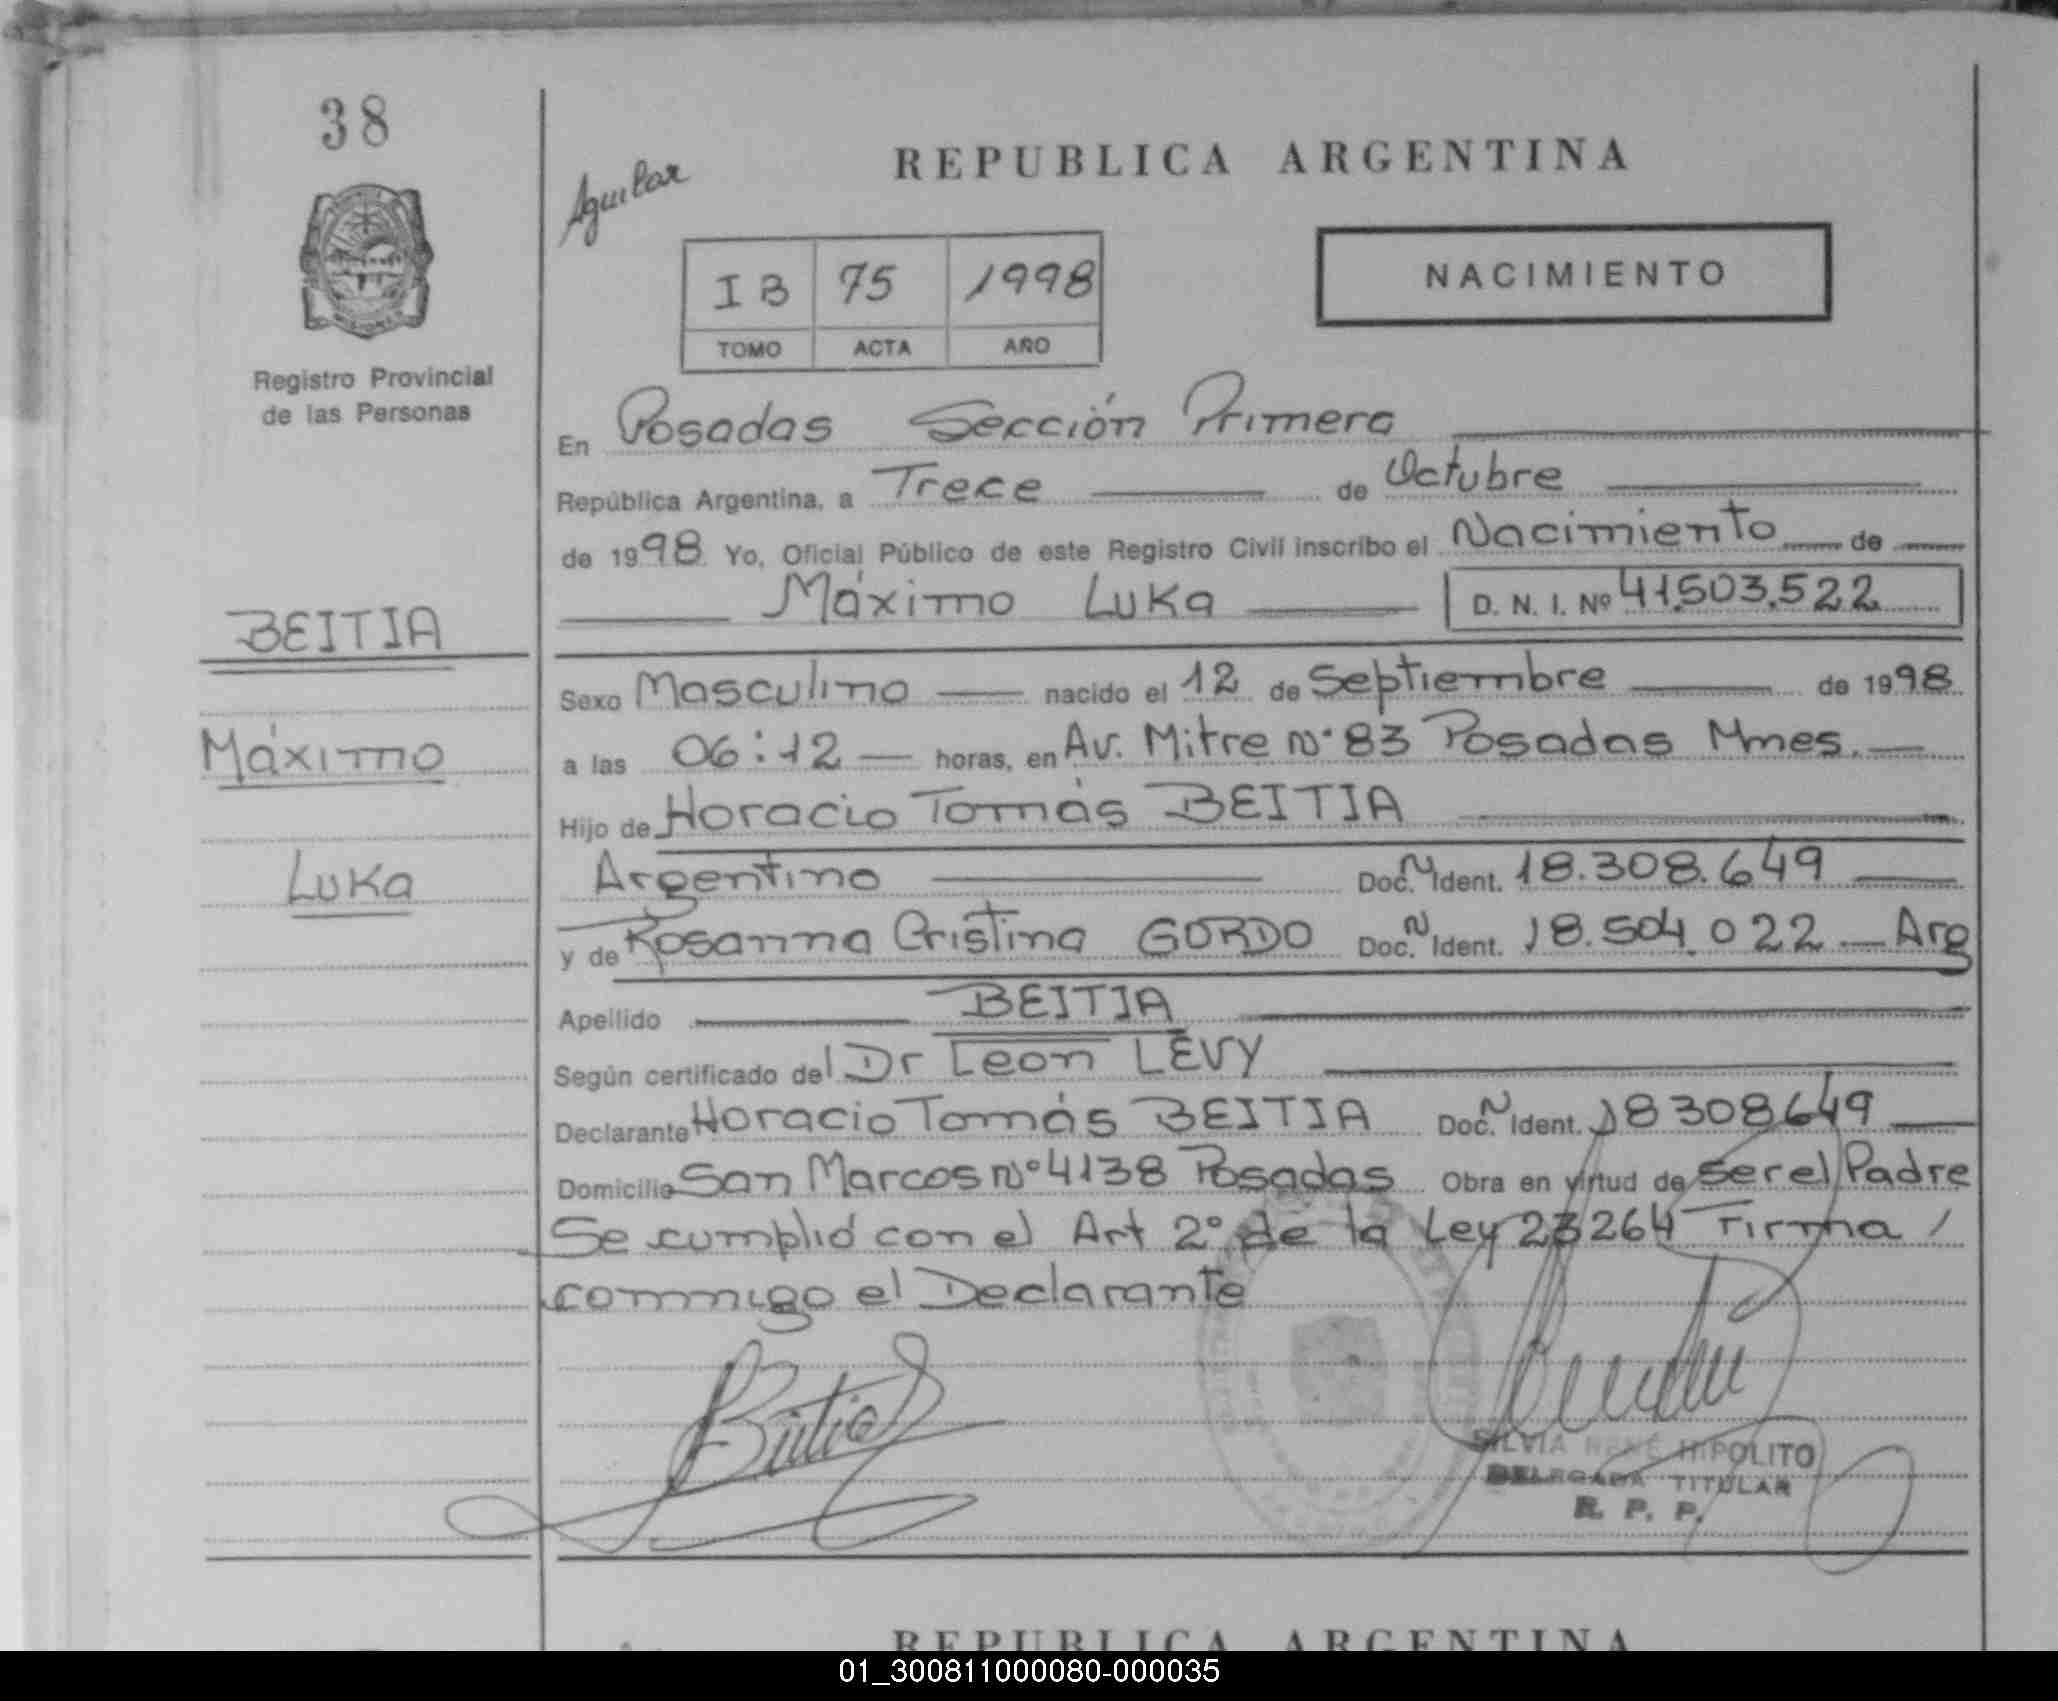 38
Aguilar
REPUBLICA ARGENTINA
I B 75 1998
TOMO ACTA AÑO
NACIMIENTO
Registro Provincial
de las Personas
En Posadas Sección Primera
República Argentina, a Trece de Octubre
de 1998. Yo, Oficial Público de este Registro Civil inscribo el Nacimiento de
Máximo Luka D. N. I. Nº 41.503.522
BEITIA
Máximo
Luka
Sexo Masculino nacido el 12 de Septiembre de 1998
a las 06:12 horas, en Av. Mitre Nº 83 Posadas Mnes.
Hijo de Horacio Tomás BEITIA
Argentino Doc. N Ident. 18.308.649
y de Rosanna Cristina GORDO Doc. N Ident. 18.504.022 Arg
Apellido BEITIA
Según certificado del Dr Leon LEVY
Declarante Horacio Tomás BEITIA Doc. N Ident. 18308649
Domicilio San Marcos Nº 4138 Posadas Obra en virtud de ser el Padre
Se cumplió con el Art 2º de la Ley 23264 Firma /
conmigo el Declarante
Beitia
SILVIA RENÉ HIPOLITO
DELEGADA TITULAR
R. P. P.
REPUBLICA ARGENTINA
01_300811000080-000035